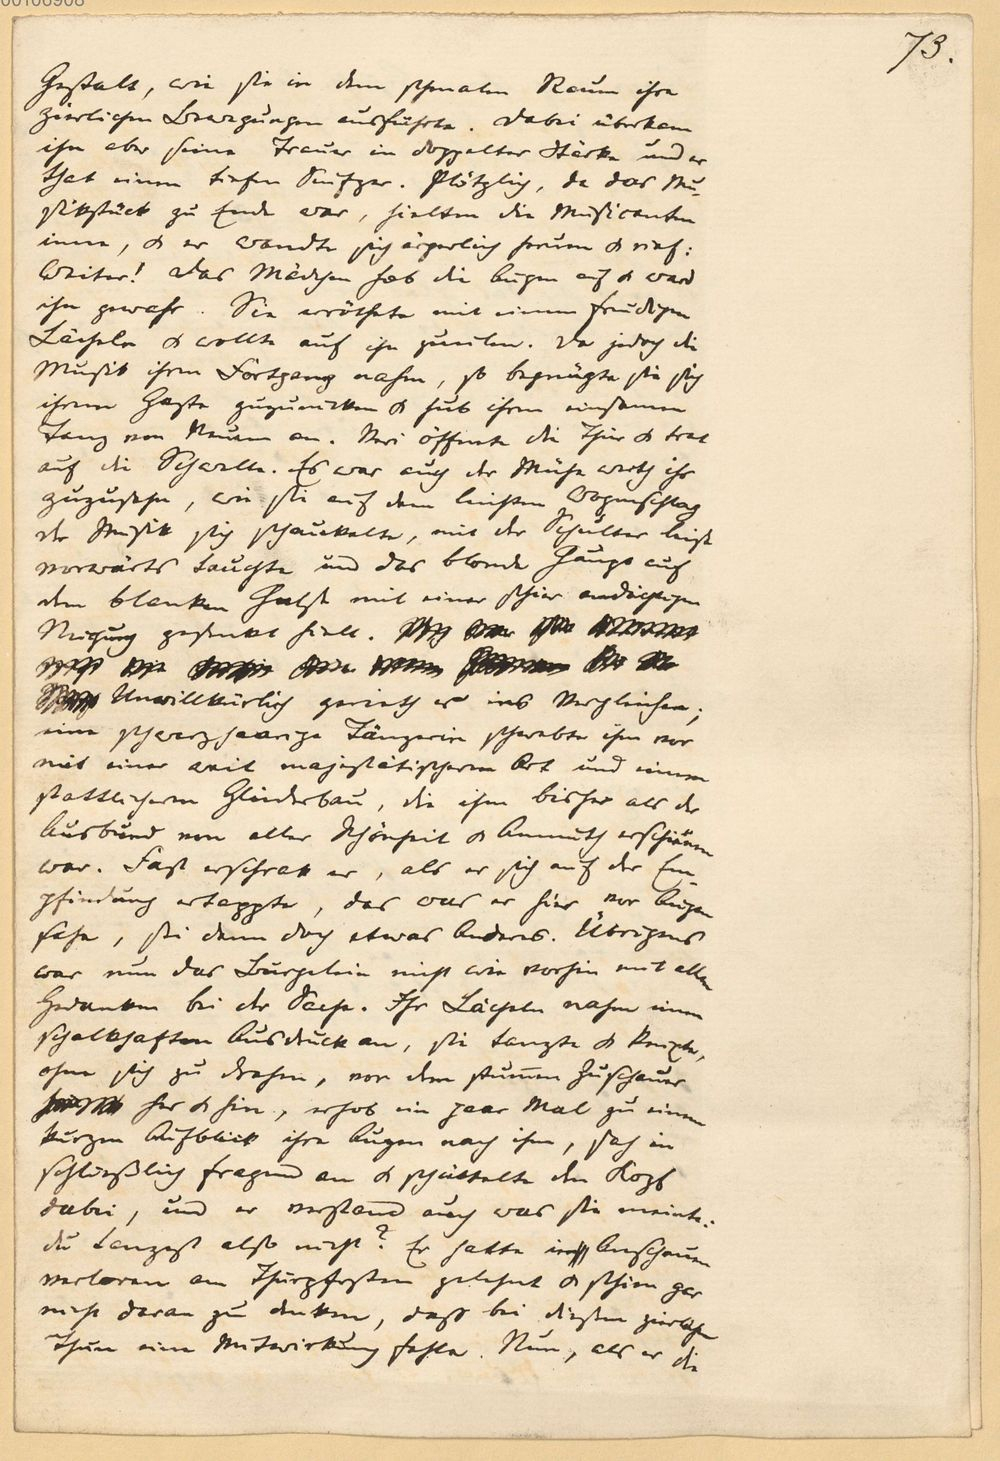 00106908
73.
Gestalt, wie sie in dem schmalen Raum ihre
zierlichen Bewegungen ausführte. Dabei überkam
ihn aber seine Trauer in doppelter Stärke und er
that einen tiefen Seufzer. Plötzlich, da das Mu-
sikstück zu Ende war, hielten die Musicanten
inne, & er wandte sich ärgerlich herum & rief:
Weiter! Das Mädchen hob die Augen auf & ward
ihn gewahr. Sie erröthete mit einem freudigen
Lächeln & wollte auf ihn zueilen. Da jedoch die
Musik ihren Fortgang nahm, so begnügte sie sich
ihrem Gaste zuzunicken & hub ihren einsamen
Tanz von Neuem an. Veri öffnete die Thür & trat
auf die Schwelle. Es war auch der Mühe werth ihr
zuzusehn, wie sie auf dem leichten Wogenschlag
der Musik sich schaukelte, mit der Schulter leise
vorwärts tauchte und das blonde Haupt auf
dem blanken Halse mit einer schier andächtigen
Neigung gesenkt hielt.
Unwillkürlich gerieth er ins Vergleichen;
eine schwarzhaarige Tänzerin schwebte ihm vor
mit einer weit majestätischeren Art und einem
stattlicheren Gliederbau, die ihm bisher als der
Ausbund von aller Schönheit & Anmuth erschienen
war. Fast erschrak er, als er sich auf der Em-
pfindung ertappte, das was er hier vor Augen
sehe, sei denn doch etwas Anderes. Übrigens
war nun das Bürgelein nicht wie vorhin mit allen
Gedanken bei der Sache. Ihr Lächeln nahm einen
schalkhaften Ausdruck an, sie tanzte & knixte,
ohne sich zu drehen, vor dem stummen Zuschauer
her & hin, erhob ein paar Mal zu einem
kurzen Aufblick ihre Augen nach ihm, sah ihn
schließlich fragend an & schüttelte den Kopf
dabei, und er verstand auch was sie meinte:
du tanzest also nicht? Er hatte Anschauen
verloren am Thürpfosten gelehnt & schien gar
nicht daran zu denken, dass bei diesem zierlichen
Thun eine Mitwirkung fehle. Nun, als er die